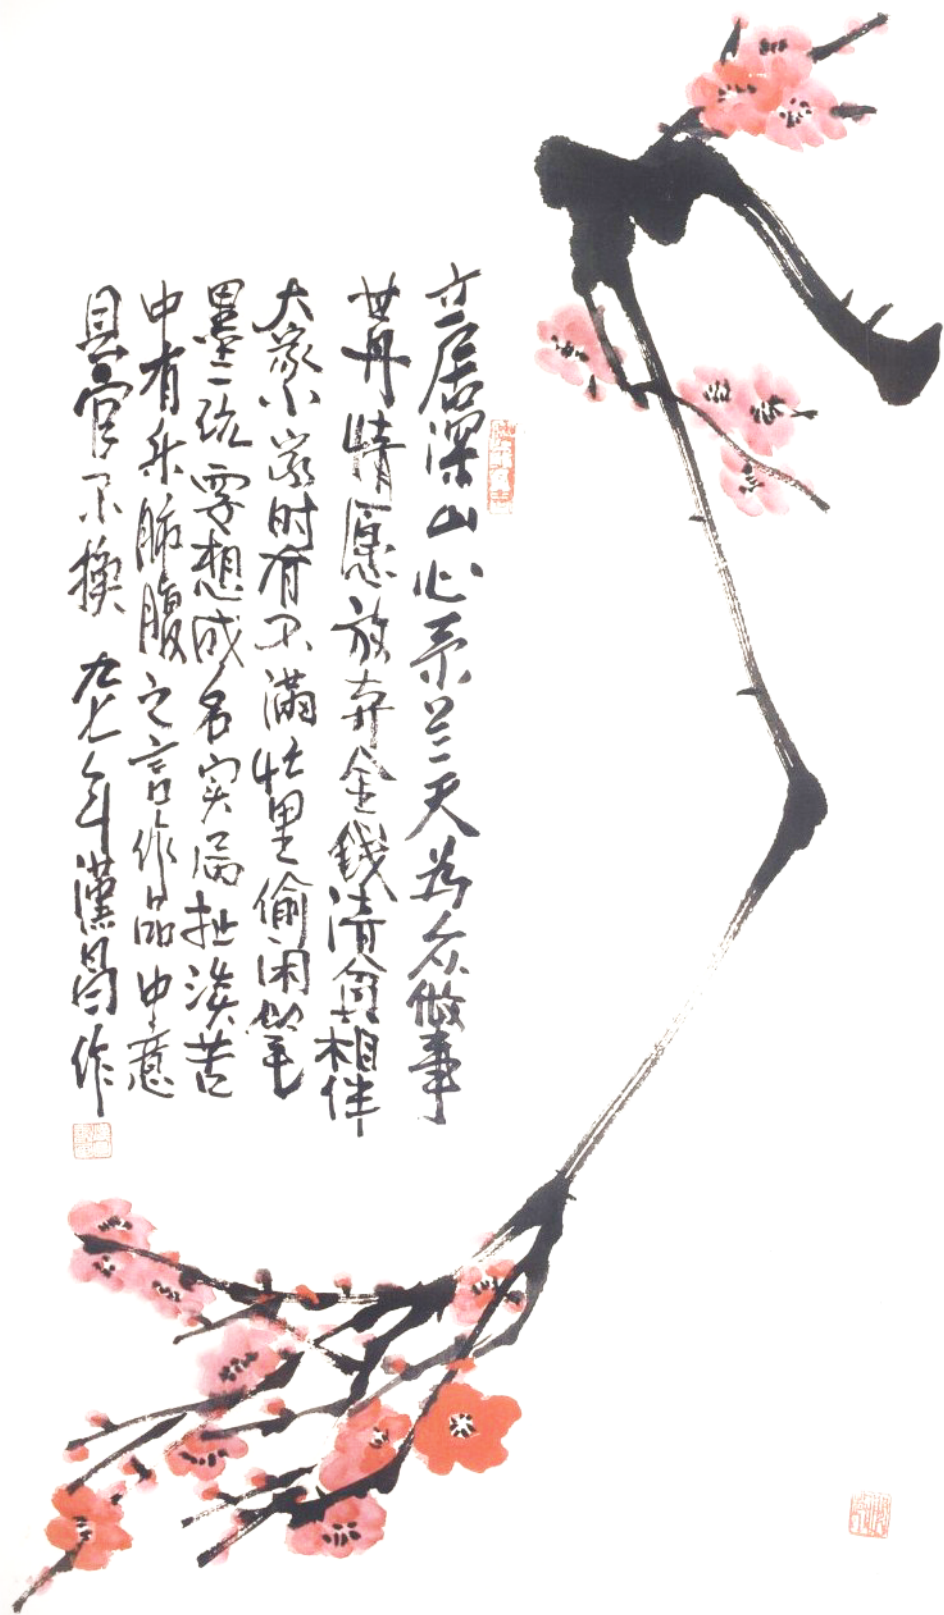 立居深山心系兰天为众做事
情愿放弃金钱清贫相伴
大家小家时有不满忙里偷闲笔
墨一玩要想成名实属扯淡苦
中有乐肺腹之言作品中意
县官不换 九七年漢昌作